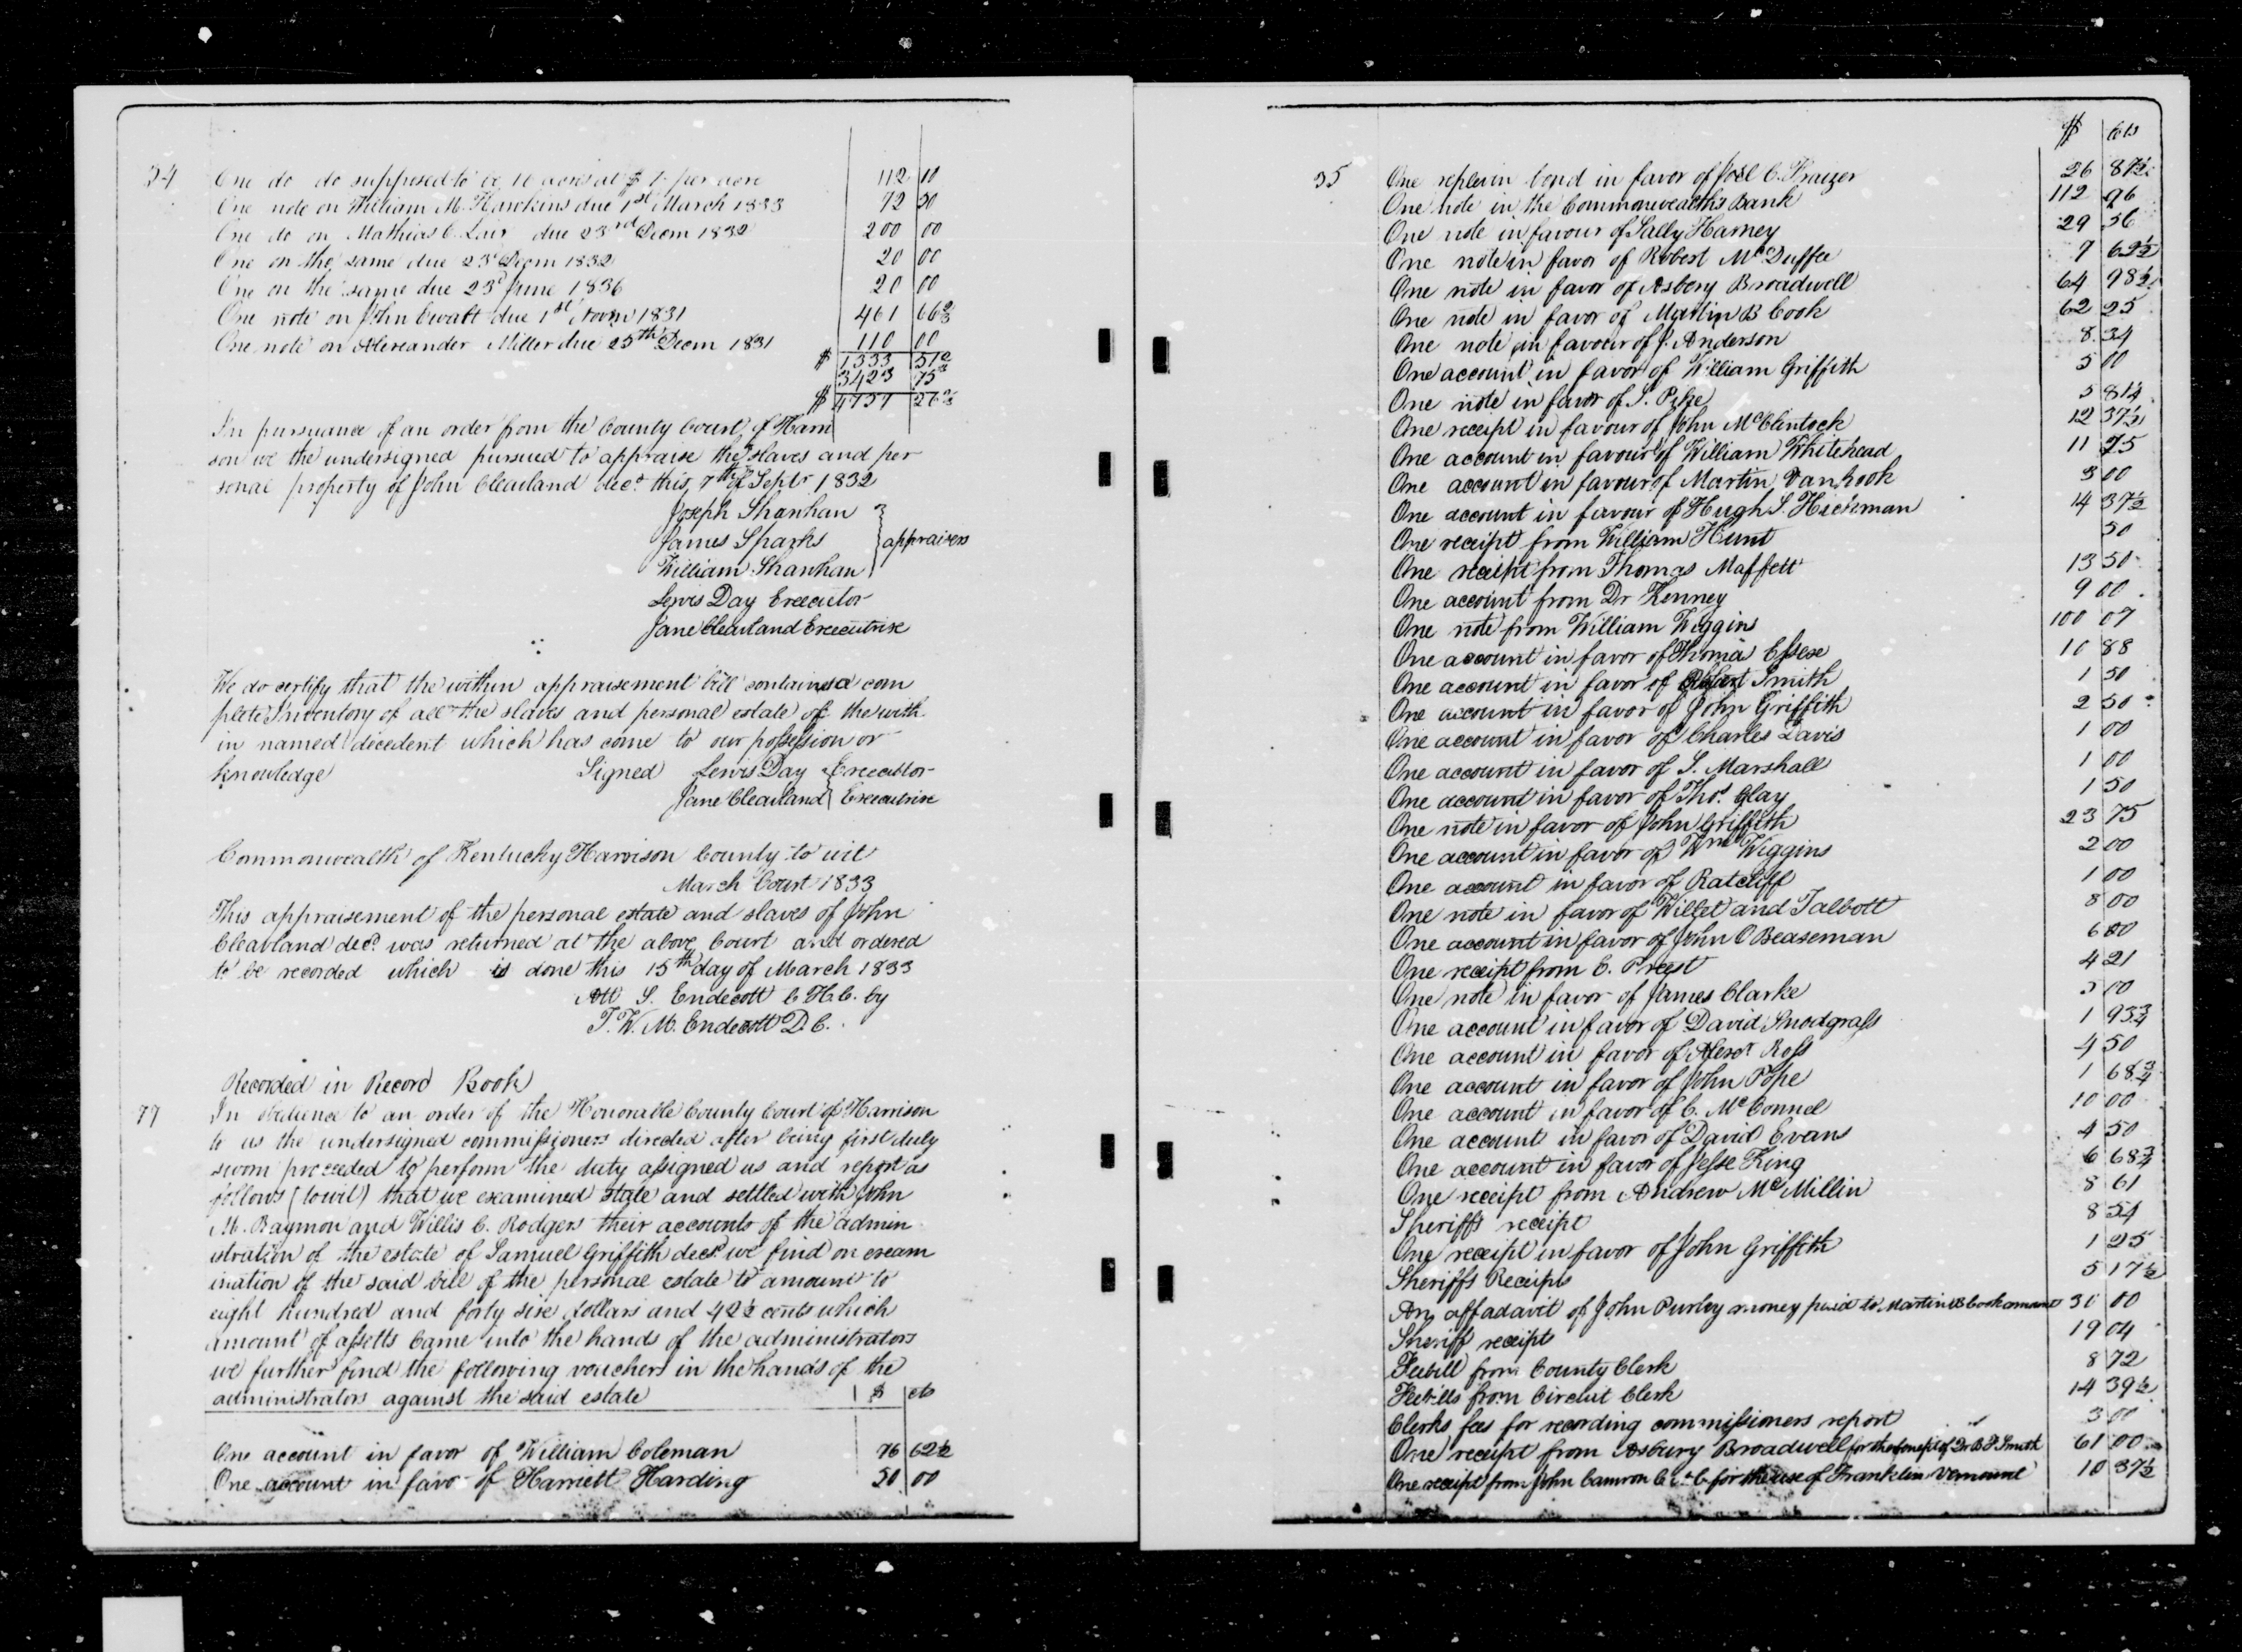 34
One do do supposed to be 10 acres at $ 1 per acre 112 10
One note on William M. Hawkins due 1st March 1833 72 50
One do on Mathias C. Lair due 23rd Decm 1832 200 00
One on the same due 23d Decm 1832 20 00
One on the same due 23d June 1836 20 00
One note on John Ewalt due 1st Novm 1831 461 66 2/3
One note on Alexander Miller due 25th Decm 1831 110 00
$ 1333 51
3423 75
$ 4757 26
In pursuance of an order from the County Court of Harri
son we the undersigned pursued to appraise the slaves and per
sonal property of John Cleavland decd. this 7th of Septr 1832
Joseph Shanhan
James Sparks } appraisers
William Shanhan
Lewis Day Executor
Jane Cleavland Executrix
We do certify that the within appraisement bill contains a com
plete Inventory of all the slaves and personal estate of the with
in named decedent which has come to our possession or
knowledge Signed Lewis Day Executor
Jane Cleavland Executrix
Commonwealth of Kentucky Harrison County to wit
March Court 1833
This appraisement of the personal estate and slaves of John
Cleavland decd. was returned at the above Court and ordered
to be recorded which is done this 15th day of March 1833
Att S. Endecott C.H.C. by
T. W. M. Endecott D.C.
Recorded in Record Book
77 In obedience to an order of the Honorable County Court of Harrison
to us the undersigned commissioners directed after being first duly
sworn proceeded to perform the duty assigned us and report as
follows (towit) that we examined state and settled with John
M. Raymon and Willis C. Rodgers their accounts of the admin
istration of the estate of Samuel Griffith decd. we find on exam
ination of the said bill of the personal estate to amount to
eight hundred and forty six dollars and 42½ cents which
amount of assetts came into the hands of the administrators
we further find the following vouchers in the hands of the
administrators against the said estate $ cts
One account in favor of William Coleman 76 62½
One account in favor of Harriett Harding 50 00
$ cts
35 One replevin bond in favor of Joel C. Fraizer 26 87½
One note in the Commonwealths Bank 112 96
One note in favour of Sally Harney 29 56
One note in favor of Robert McDuffee 7 62½
One note in favor of Asbery Broadwell 64 98½
One note in favor of Martin B Cook 62 25
One note in favour of J. Anderson 8 34
One account in favor of William Griffith 5 00
One note in favor of S. Pike 5 81¼
One receipt in favour of John McClintock 12 37½
One account in favour of William Whitehead 11 75
One account in favour of Martin Vanhook 3 00
One account in favour of Hugh S. Hickman 14 37½
One receipt from William Hunt 50
One receipt from Thomas Maffett 13 50
One account from Dr Kenney 9 00
One note from William Wiggins 100 07
One account in favor of Thomas Essex 10 88
One account in favor of Robert Smith 1 50
One account in favor of John Griffith 2 50
One account in favor of Charles Davis 1 00
One account in favor of S. Marshall 1 00
One account in favor of Thos. Clay 1 50
One note in favor of John Griffith 23 75
One account in favor of Wm Wiggins 2 00
One account in favor of Ratcliff 1 00
One note in favor of Willet and Talbott 8 00
One account in favor of John C Beaseman 6 00
One receipt from E. Preest 4 21
One note in favor of James Clarke 5 00
One account in favor of David Snodgrass 1 93¾
One account in favor of Alexr Ross 4 50
One account in favor of John Pope 1 68¾
One account in favor of C. McConnel 10 00
One account in favor of David Evans 4 50
One account in favor of Jesse King 6 68¾
One receipt from Andrew McMillin 8 61
Sheriffs receipt 8 54
One receipt in favor of John Griffith 1 25
Sheriffs Receipts 5 17½
An affadavit of John Purley money paid to Martin B Cook amount 30 00
Sheriff receipts 19 04
Feebill from County Clerk 8 72
Feebills from Circuit Clerk 14 39½
Clerks fees for recording commissioners report 3 00
One receipt from Asbury Broadwell for the benefit of Dr B F Smith 61 00
One receipt from John Camron for the use of Franklin 10 37½